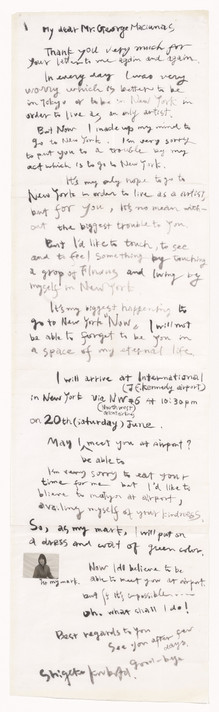 My dear Mr. George Maciunas
Thank you very much for
your letter to me again and again.
In every day I was very
worry which is better to be
in Tokyo or to be in New York in
order to live as an only artist.
But Now I made up my mind to
go to New York. I'm very sorry
to put you to a trouble by my
act which is to go to New York.
It's my only hope to go to
New York in order to live as a artist,
but for you, it's no mean with-
out the biggest trouble to you.
But I'd like to touch, to see
and to feel something by touching
a grop of Fluxus and living by
myself in New York
It's my biggest happening to
go to New York Now. I will not
be able to forget to be you in
a space of my eternal life.
I will arrive at International
(J.F. Kennedy airport)
in New York via NW #6 at 10:30pm
(Northwest)
on 20th (saturday) June.
May I meet you at airport?
be able to
I'm very sorry to eat your
time for me but I'd like to
blieve to meet you at airport,
availing myself of your kindness.
So, as my mark, I will put on
a dress and coat of green color.
Now I'd believe to be
able to meet you at airport.
but if it's impossible......
oh. what shall I do!
Best regards to you
See you after
days.
good-bye
Shigeko Kubota.